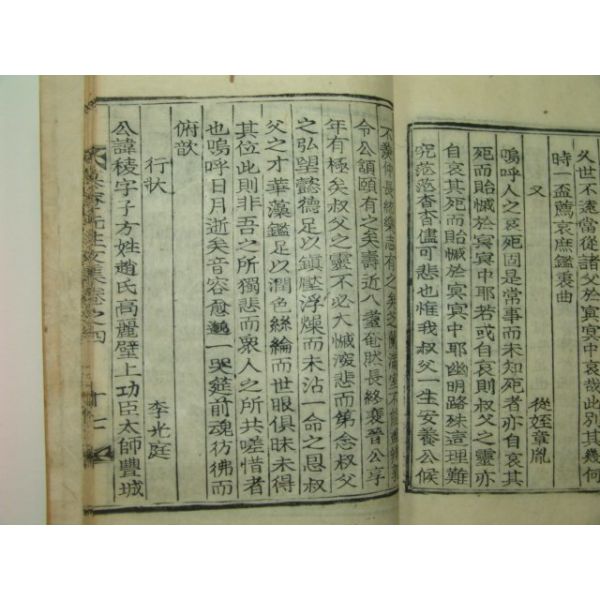 久世不遠當從諸父於冥冥哉此別其幾何
時一盃薦哀庶鑑衷曲
又 從姪章胤
嗚呼人之哀死固是常事而未知死者亦自哀其
死而貽慽於冥冥中耶若或自哀則叔父之靈亦
自哀其死而貽慽於冥冥中耶幽明路殊這理難
究茫茫杳杳儘可悲也惟我叔父一生安養公候
令公頷頤有之矣壽近八耋奄然長終裵晉公享
年有極矣叔父之靈不必大慽深悲而第念叔父
之弘望懿德足以鎭壓浮燥而未沾一命之恩叔
父之才華藻鑑足以潤色絲綸而世眼俱昧未得
其位此則非吾之所獨悲而衆人之所共嗟惜者
也嗚呼日月逝矣音容愈邈一哭筵前魂彷彿而
俯歆
行狀 李光庭
公諱稜字子方姓趙氏高麗壁上功臣太師豐城
先生文集卷之四 十七